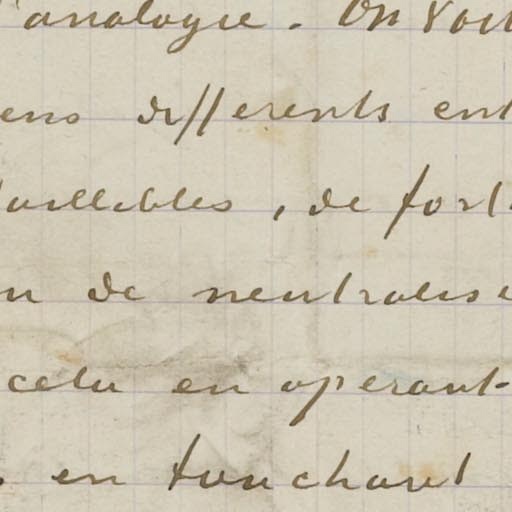 'analogie. On voit
ens différents ent
faillibles, de fort
n de neutralise
cela en opérant
. en touchant